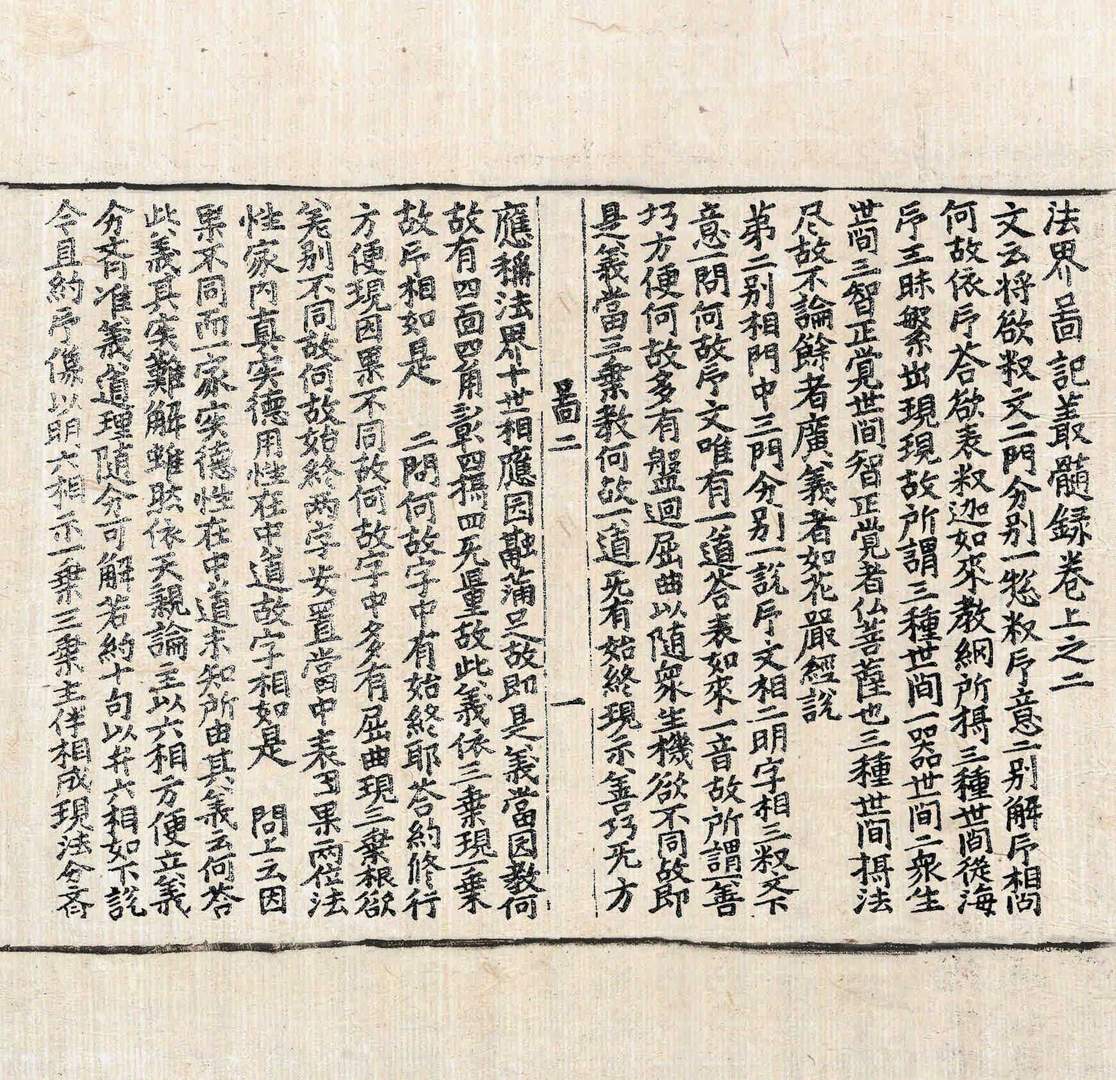 法界啚記䕺髓録卷上之二
文云将欲䆁文二門分别一惣䆁印意二别解印相问
何故依印荅欲表䆁迦如來教網所攝三種世间從海
印三昧繁出現現故所謂三種世间一器世间二衆生
世间三智正覺世间智正覺者仏菩薩也三種世间攝法
尽故不論餘者廣義者如花嚴經說
苐二别相門中三門分别一說印文相二明字相三䆁文下
意一問何故印文唯有一道答表如來一音故所謂一善
巧方便何故多有盤迴屈曲以随衆生機欲不同故即
是義當三乗教何故一道旡有始終現示善巧旡方
啚二 一
應稱法界十世相應因融蒲足故即是義當因教何
故有四面四角彰四攝四旡量故此義依三乗現一乗
故印相如是 二問何故字中有始終耶答約修行
方便現因果不同故何故字中多有屈曲現三乗根欲
羌别不同故何故始終两字安置當中表因果两位法
性家内真实德用性在中道故字相如是 問上云因
果不同而一家实德性在中道未知所由其義云何答
此義其实難解雖然依天親論主以六相方便立義
分齊准義道理随分可解若約十句以弁六相如下說
今且約印像以明六相示一乗三乗主伴相成現法分齊